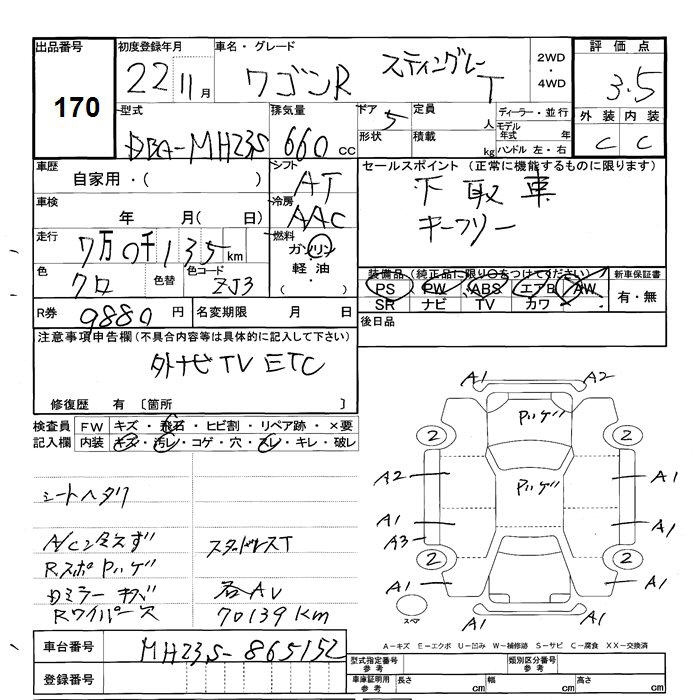 出品番号 初度登録年月 車名・グレード 評価点
170 22 11月 ワゴンR スティングレー T 2WD・4WD 3.5
型式 排気量 ドア 定員 ディーラー・並行 外装 内装
DBA-MH23S 660cc 5 人 モデル年式 年 C C
形状 積載 kg ハンドル 左・右
車歴 シフト セールスポイント (正常に機能するものに限ります)
自家用・( ) AT 下取車
車検 冷房 キーフリー
年 月( 日) AAC
走行 燃料
7万0千135km ガソリン
色 色替 色コード 軽油 装備品 (純正品に限り○をつけてください) 新車保証書
クロ ZJ3 ・( ) PS PW ABS エアB AW 有・無
SR ナビ TV カワ
R券 9880円 名変期限 月 日 後日品
注意事項申告欄 (不具合内容等は具体的に記入して下さい)
外ナビTV ETC
修復歴 有 〔箇所 〕
検査員 FW キズ・飛石・ヒビ割・リペア跡・×要
記入欄 内装 キズ・汚レ・コゲ・穴・スレ・キレ・破レ
シートヘタリ
A/C スタッドレスT
Rスポ
Dミラーキズ
Rワイパーレス 70139KM
A1 A2
2 2
A2 A1
A1 A1
A3
2 2
A1 A1
A1 A1
スペア
A-キズ E-エクボ U-凹み W-補修跡 S-サビ C-腐食 XX-交換済
車台番号 MH23S-865152
登録番号
型式指定番号 参考 類別区分番号 参考
車庫証明用 参考 長さ cm 幅 cm 高さ cm